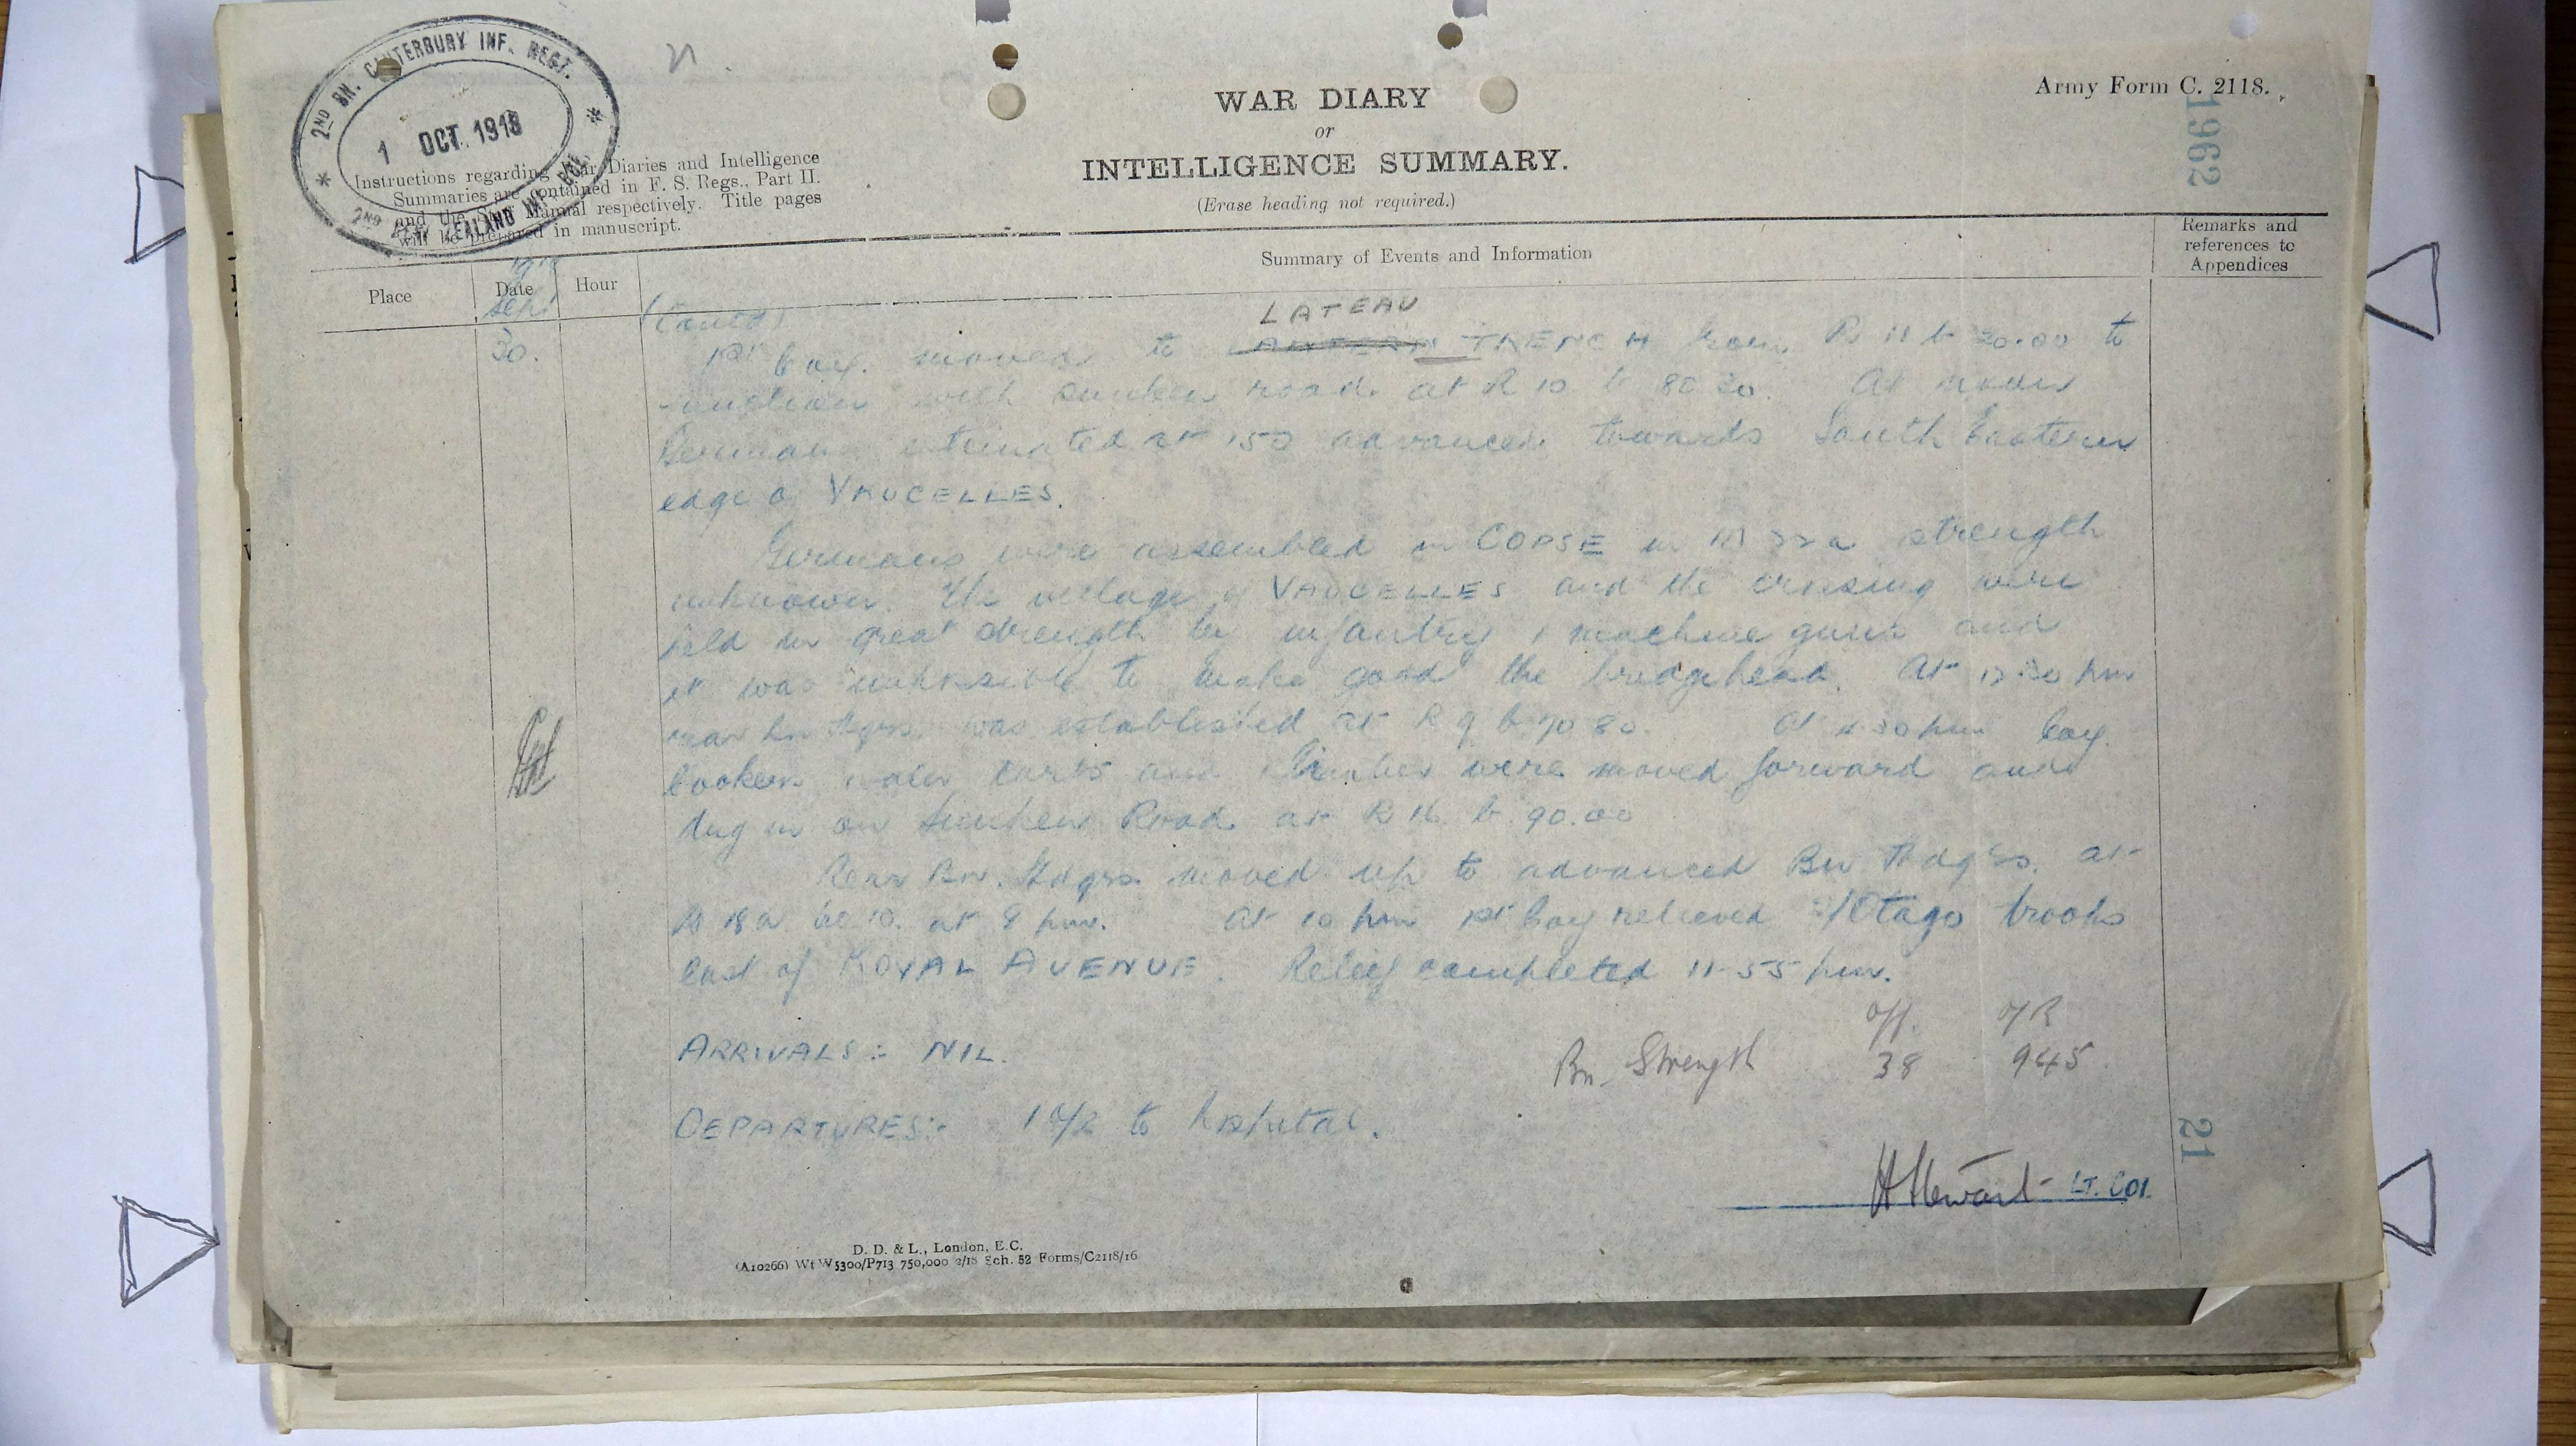 2ND BN. CANTERBURY INF. REGT.
1 OCT. 1918
2ND NEW ZEALAND INF. BDE.
21.
Army Form C. 2118.
1962
WAR DIARY
or
INTELLIGENCE SUMMARY.
(Erase heading not required.)
Instructions regarding War Diaries and Intelligence
Summaries are contained in F. S. Regs., Part II.
and the Staff Manual respectively. Title pages
will be prepared in manuscript.
Place
Date
Sept
Hour
Summary of Events and Information
Remarks and
references to
Appendices
(Contd)
LATEAU
30.
1st Coy. moved to LANTERN TRENCH from R 11 b 20.00 to
junction with sunken road at R 10 b 80 20. At noon
Germans estimated at 150 advanced towards South Eastern
edge of VAUCELLES.
Germans were assembled in COPSE in M 22 a strength
unknown. The village of VAUCELLES and the crossing were
held in great strength by infantry & machine guns and
it was impossible to make good the bridgehead. At 12.30 pm
rear Bn Hqrs was established at R 9 b 70 80. At 4.30 pm Coy.
Cookers water carts and limbers were moved forward and
dug in on Sunken Road at R 16 b. 90.00
Rear Bn. Hdqrs moved up to advanced Bn Hdqrs. at
R 18 a 10. at 8 pm. At 10 pm 1st Coy relieved 2/Otago troops
East of ROYAL AVENUE. Relief completed 11-55 pm.
ARRIVALS:- NIL.
Off. O/R
Bn. Strength 38 945
DEPARTURES:- 1 O/R to hospital.
21
H Stewart LT. COL.
D. D. & L., London, E.C.
(A10266) Wt W5300/P713 750,000 2/18 Sch. 52 Forms/C2118/16